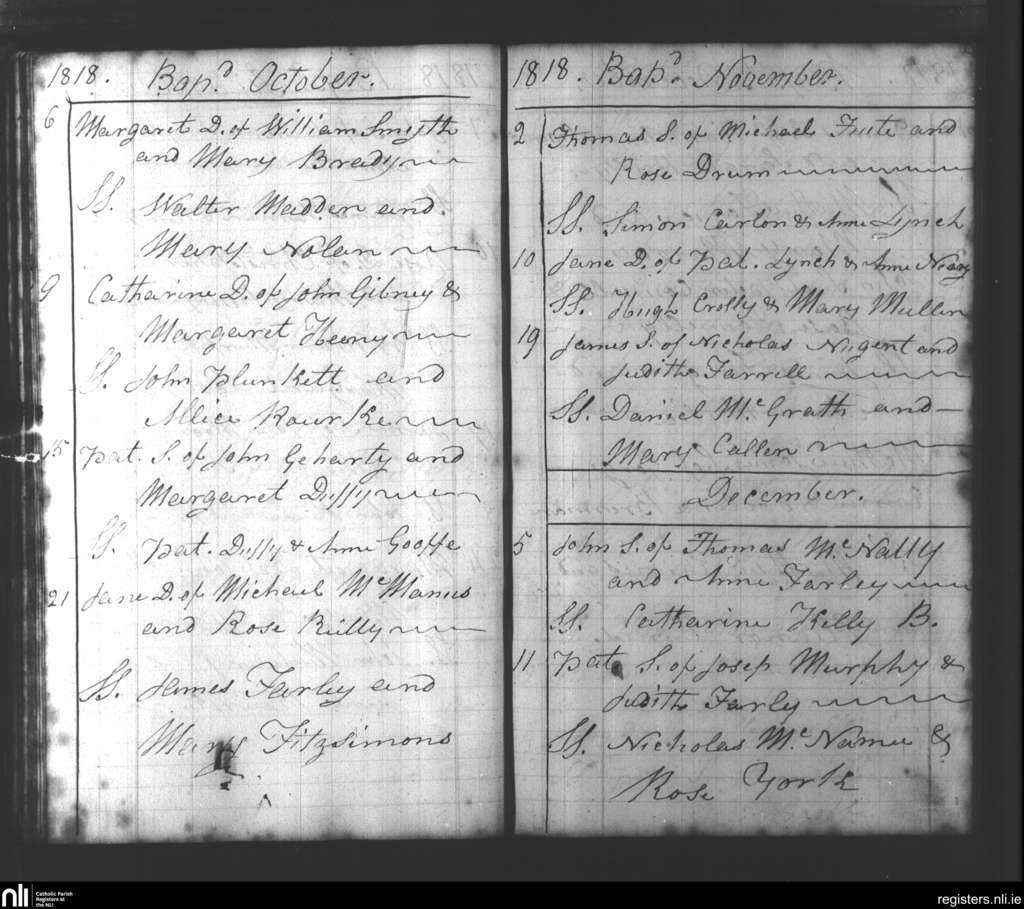 1818. Bap.d October.
6 Margaret D. of William Smyth
and Mary Brady
SS. Walter Madden and.
Mary Nolan
9 Catharine D. of John Gibney &
Margaret Heeny
SS. John Plunkett and
Allice Rourke
15 Pat. S. of John Geharty and
Margaret Duffy
SS. Pat. Duffy & Anne Gooffe
21 Jane D. of Michael Mc.Manus
and Rose Reilly
SS. James Farley and
Mary Fitzsimons
1818. Bap.d November.
2 Thomas S. of Michael and
Rose Drum
SS. Simon Carlon & Anne Lynch
10 Jane D. of Pat. Lynch & Anne Neary
SS. Hugh Crolly & Mary Mullen
19 James S. of Nicholas Nugent and
Judith Farrell
SS. Daniel Mc.Grath and
Mary Callen
December.
5 John S. of Thomas Mc.Nally
and Anne Farley
SS. Catharine Kelly B.
11 Pat S. of Josep Murphy &
Judith Farly
SS. Nicholas Mc.Namee &
Rose York
nli Catholic Parish
Registers at
the NLI
registers.nli.ie